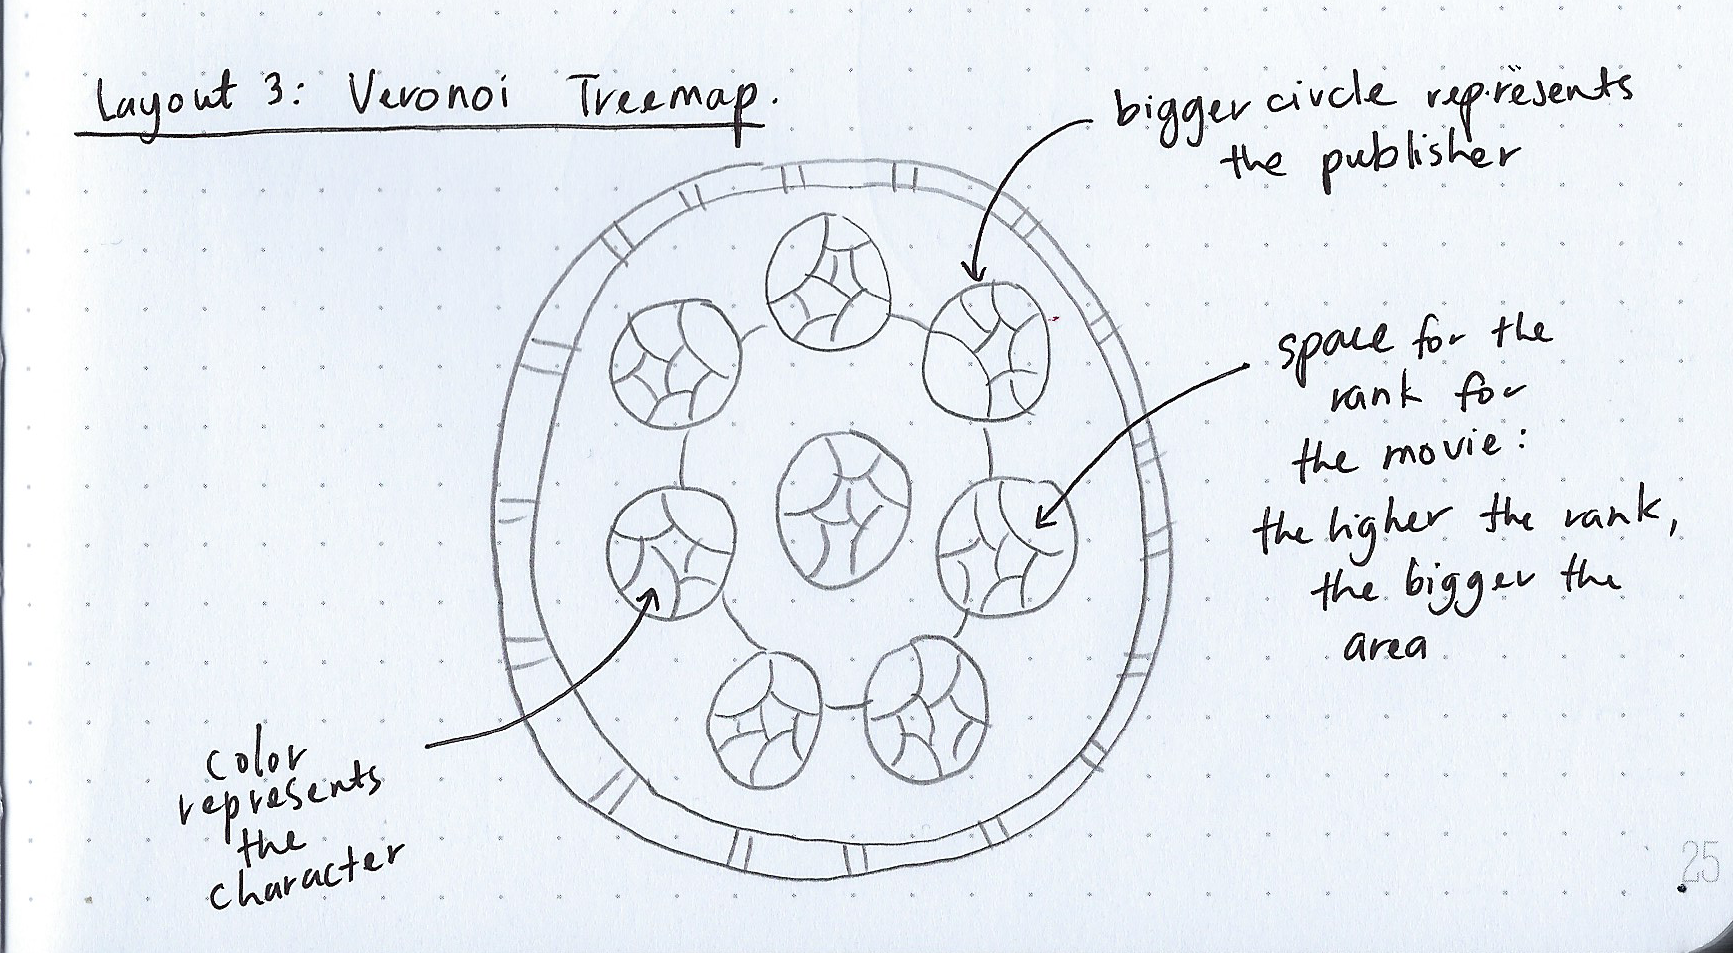 Layout 3: Veronoi Treemap.
bigger circle represents
the publisher
space for the
rank for
the movie:
the higher the rank,
the bigger the
area
color
represents
the
character
25